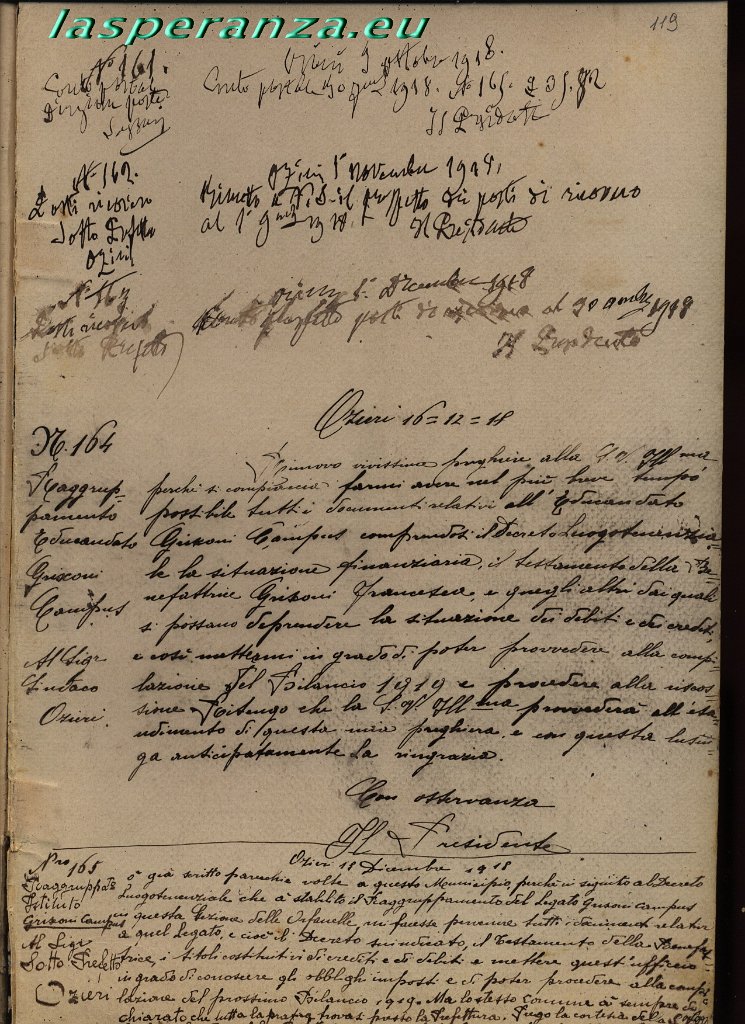 lasperanza.eu
119
N° 161
Ozieri 9 ottobre 1918.
Conto postale
Conto postale 30 1918. N° 161. £ 35.
Direzione poste
Sassari
Il Presidente
N° 162.
Ozieri 1° novembre 1918.
Posti ricovero
Rimetto a V.S. il prospetto dei posti di ricovero
Sotto Prefetto
al 1° 9mbre 1918.
Ozieri
Il Presidente
N° 163
Ozieri 1° Dicembre 1918
Posti ricovero
prospetto posti di al 30 9mbre 1918
Sotto Prefetto
Il Presidente
Ozieri 16=12=18
N. 164
Rinnovo vivissime preghiere alla S.V. Ill ma
Raggrup-
perchè si compiaccia farmi avere nel più breve tempo
pamento
possibile tutti i documenti relativi all'Educandato
Educandato
Grixoni Campus compresovi il Decreto Luogotenenzia-
Grixoni
le la situazione finanziaria, il testamento della Be-
Campus
nefattrice Grixoni Francesca, e quegli altri dai quali
si possano deprendere la situazione dei debiti e dei crediti,
Al Sigr
e così mettermi in grado di poter provvedere alla compi-
Sindaco
lazione del Bilancio 1919 e procedere alla riscos-
Ozieri.
sione. Ritengo che la S.V. Ill ma provvederà all'esau-
dimento di questa mia preghiera, e con questa lusin-
ga anticipatamente La ringrazia.
Con osservanza
Il Presidente
Nro 165
Ozieri 18 Dicembre 1918
Raggruppato
ò già scritto parecchie volte a questo Municipio, perchè in seguito al Decreto
Istituto
Luogotenenziale che à stabilito il Raggruppamento del Legato Grixoni Campus
Grixoni Campus
questa Sezione delle Orfanelle, mi facesse pervenire tutti i documenti relativi
Al Sigr
a quel Legato, e cioè il Decreto suindicato, il Testamento della Benefat-
Sotto Prefetto
trice, i titoli costitutivi di crediti e di debiti e mettere quest'ufficio
Ozieri
in grado di conoscere gli obblighi imposti e di poter procedere alla compi-
lazione del prossimo Bilancio 1919. Ma lo stesso Comune à sempre di-
chiarato che tutta la pratica trovasi presso la Prefettura. Prego la cortesia della